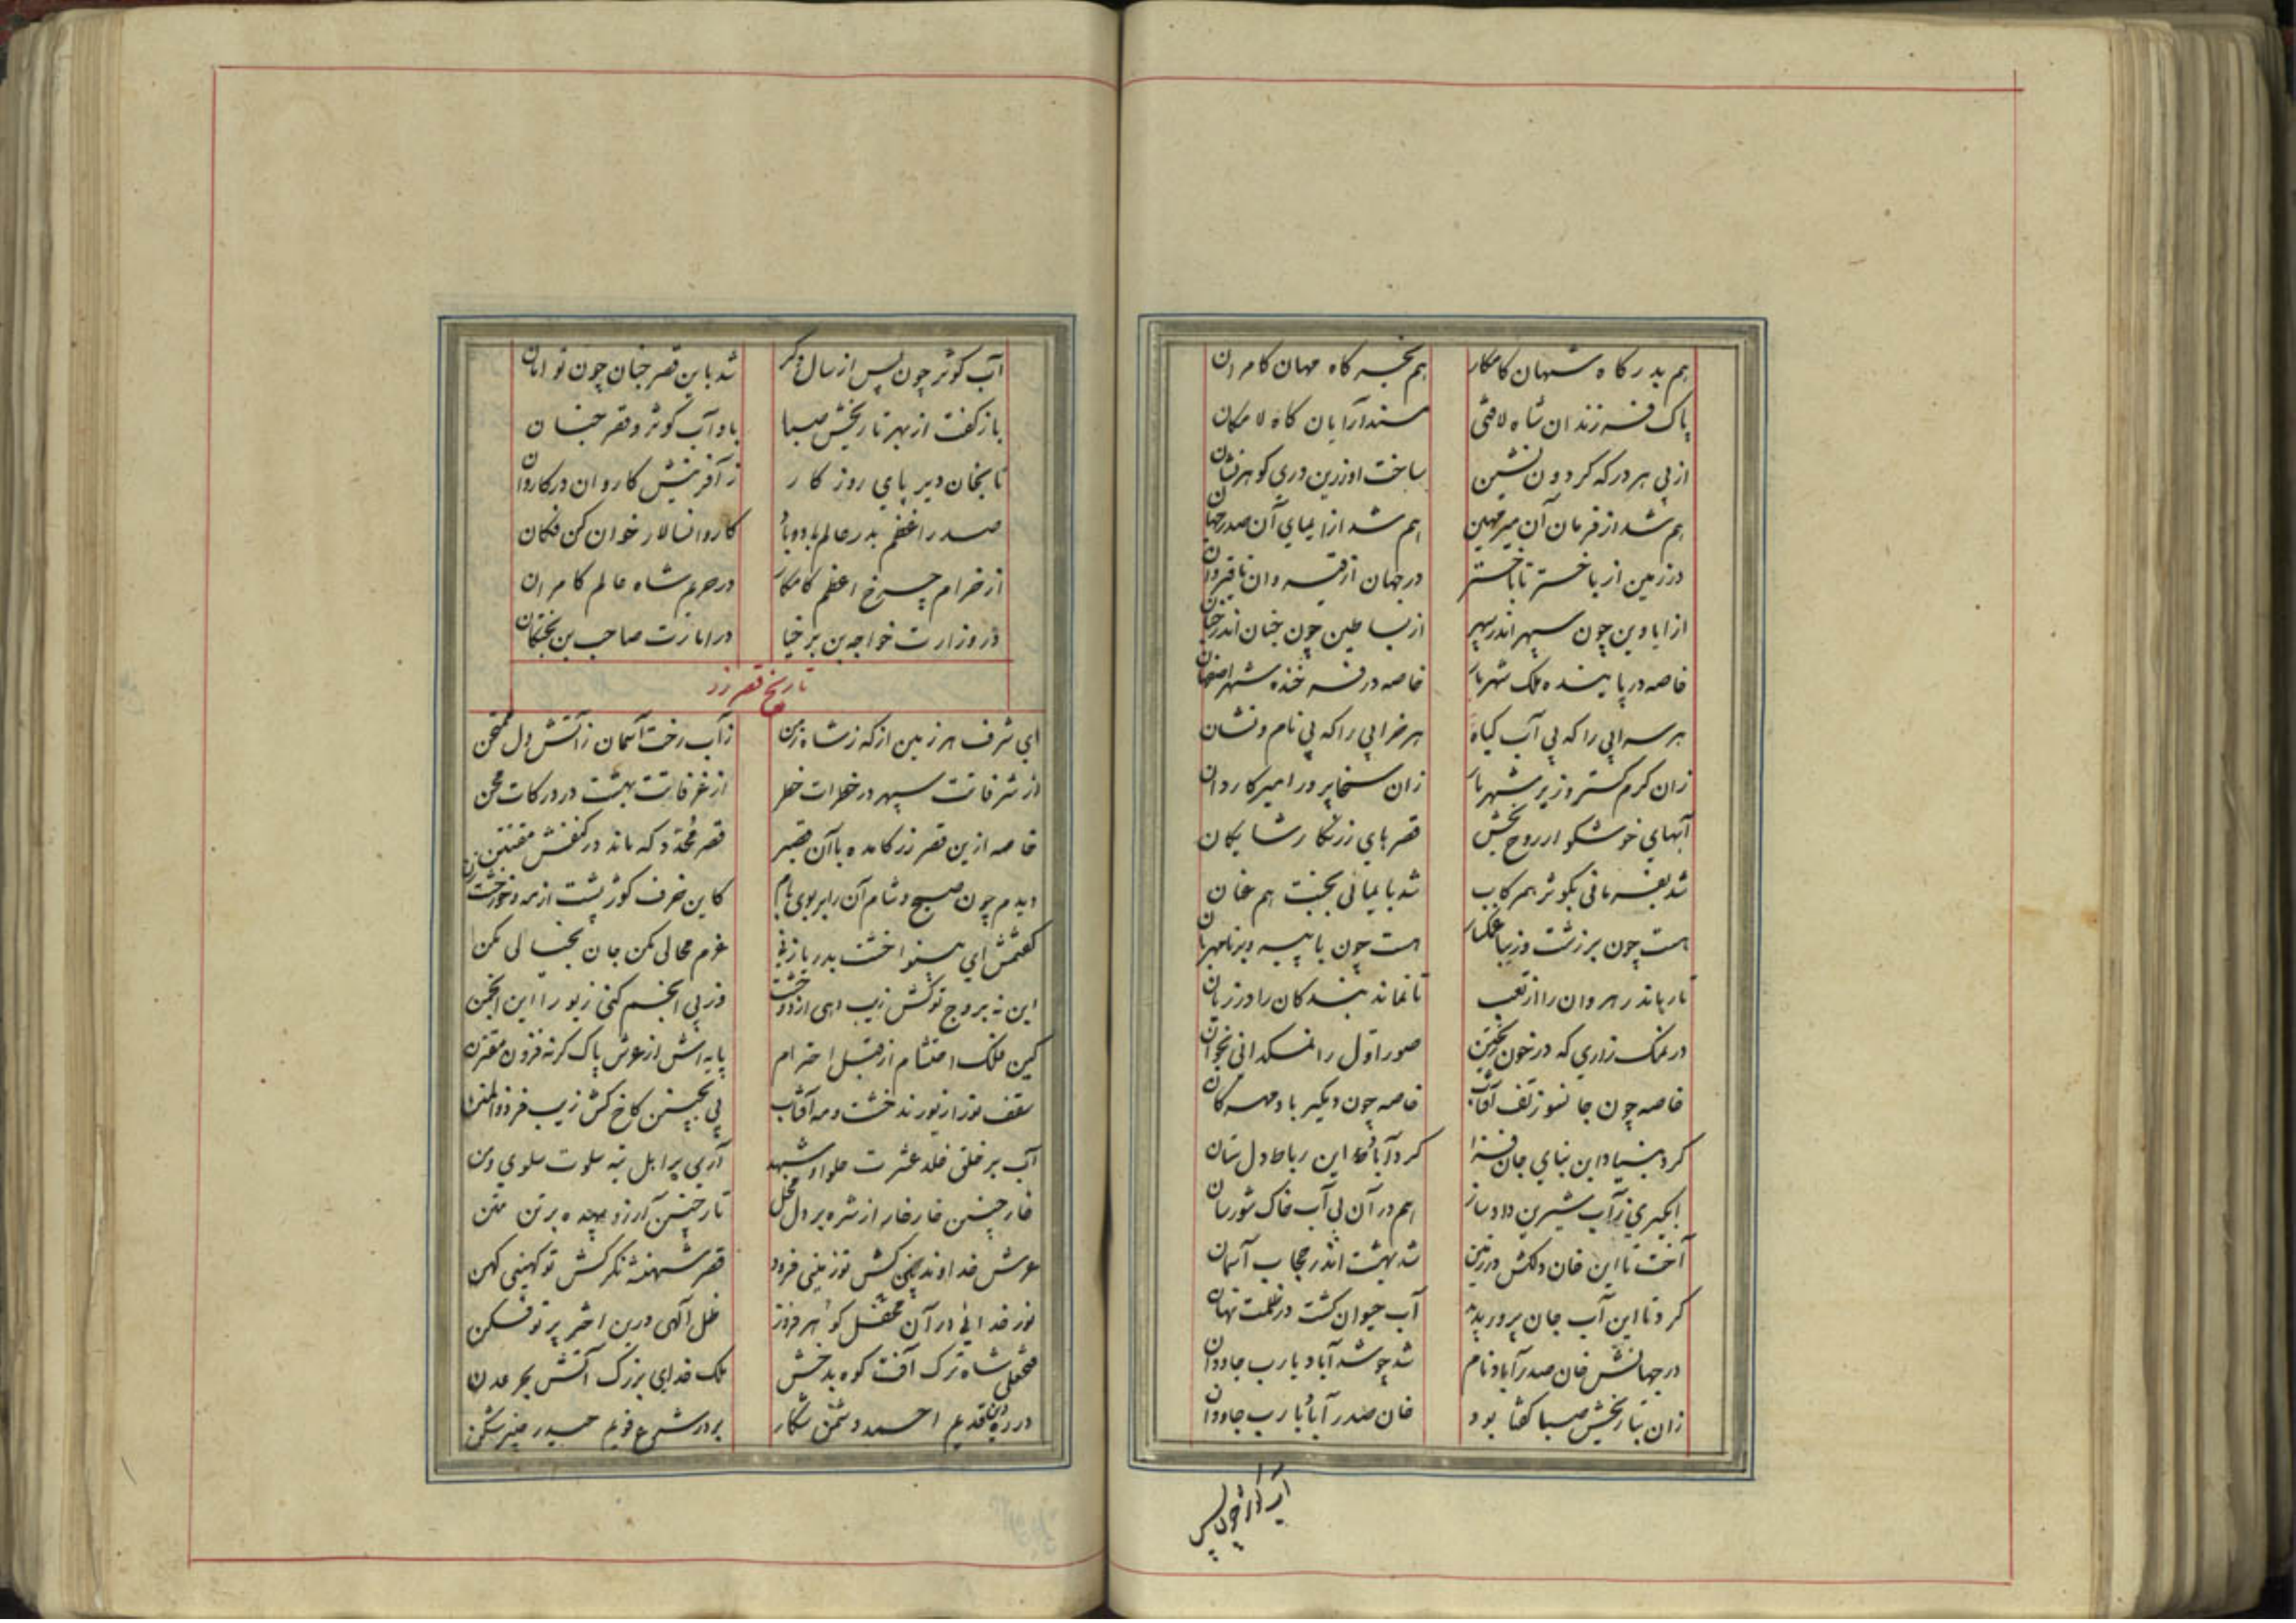 هم بدرکاه شهان کامکار هم بخرکاه مهان کامران
پاک فرزندان شاه لافتی مسندآرایان کاه لامکان
از پی هر درکه کردون نشین ساخت او زرین دری کوهرنشان
هم شد از فرمان آن میر مهین هم شد از ایمای آن صدر جهان
در زمین از باختر تا باختر در جهان از قیروان تا قیروان
از ایادین چون سپهر اندر سپهر از بساطین چون جنان اندر جنان
خاصه در پاینده ملک شهریار خاصه در فرخنده شهر اصفهان
هر سرابی را که بی آب کیاه هر خرابی را که بی نام و نشان
زان کرم کستر وزیر شهریار زان سخاپرور امیر کاردان
آبهای خوشکوار روح بخش قصرهای زرنکار شایکان
شد بفرمانی بکوثر همرکاب شد بایمائی بجنت هم عنان
هست چون بر زشت و زیبا غمکسار هست چون با پیر و برنا مهربان
تا رهاند رهروان را از تعب تا نماند بندکان را در زیان
در نمک زاری که در خون صور اول را نمکدانی بخوان
خاصه چون جانسوز تف آفتاب خاصه چون دیگیر باد مهرکان
کرد بنیاد این بنای جان فزا کرد آباد این رباط دل ستان
آبکیری ز آب شیرین داد ساز هم در آن بی آب خاک شورسان
آخت تا این خان دلکش در زمین شد بهشت اندر حجاب آسمان
کرد تا این آب جان پرور پدید آب حیوان کشت در ظلمت نهان
در جهانش خان صدرآباد نام شد چو شد آباد یارب جاودان
زان بتاریخش صبا کفتا بود خان صدرآباد یارب جاودان
آب کوثر چون پس
آب کوثر چون پس از سال دکر شد باین قصر جنان چون توامان
باز کفت از بهر تاریخش صبا باد آب کوثر و قصر جنان
تا بخان دیر پای روزکار ز آفرینش کاروان در کاروان
صدر اعظم بدر عالم باد و باد کاروانسالار خوان کن فکان
از خرام چرخ اعظم کامکار در حریم شاه عالم کامران
در وزارت خواجه بن برخیا در امارت صاحب بن بختکان
تاریخ قصر زر
ای شرف هر زمین از که ز شاه زمن ز آب رخت آسمان ز آتش دل ممتحن
از شرفاتت سپهر در خطرات خطر از غرفاتت بهشت در درکات محن
خاصه ازین قصر زر کامده با آن قصیر قصر مجدد که ماند در کنفش مفتتن
دیدم چون صبح و شام آن را بر بوی بام کاین خرف کوژپشت از مه و خور خشت زن
کفتمش ای بینوا خشت بدریا زنی عزم محالی مکن جان بخیالی مکن
این نه بروج توکش زیب دهی از دو خشت وز پی انجم کنی زیور این انجمن
کین فلک احتشام از قبل احترام پایه اش از عرش پاک کرنه فزون مقترن
سقف نوزاز نورند خشت و مه آفتاب پی بچنین کاخ کش زیب فر ذوالمنن
آب بر خلق خلد عشرت حلوا و شهد آری بر اهل تیه سلوت سلوی و من
خار چنین خارخار از شره بر دل مخل تار چنین آرزو بر تن متن
عرش خداوند بین کش تو زمینی فرود قصر شهنشه نکر کش تو کهینی کهن
نور خدائی در آن محفل کوهر فروز ظل آلهی درین اختر پرتو فکن
فتحعلی شاه ترک آفت کوه بدخش ملک خدای بزرک آتش بحر عدن
در ره دین قدیم احمد دشمن شکار بر در شرع قویم حیدر خیبرشکن